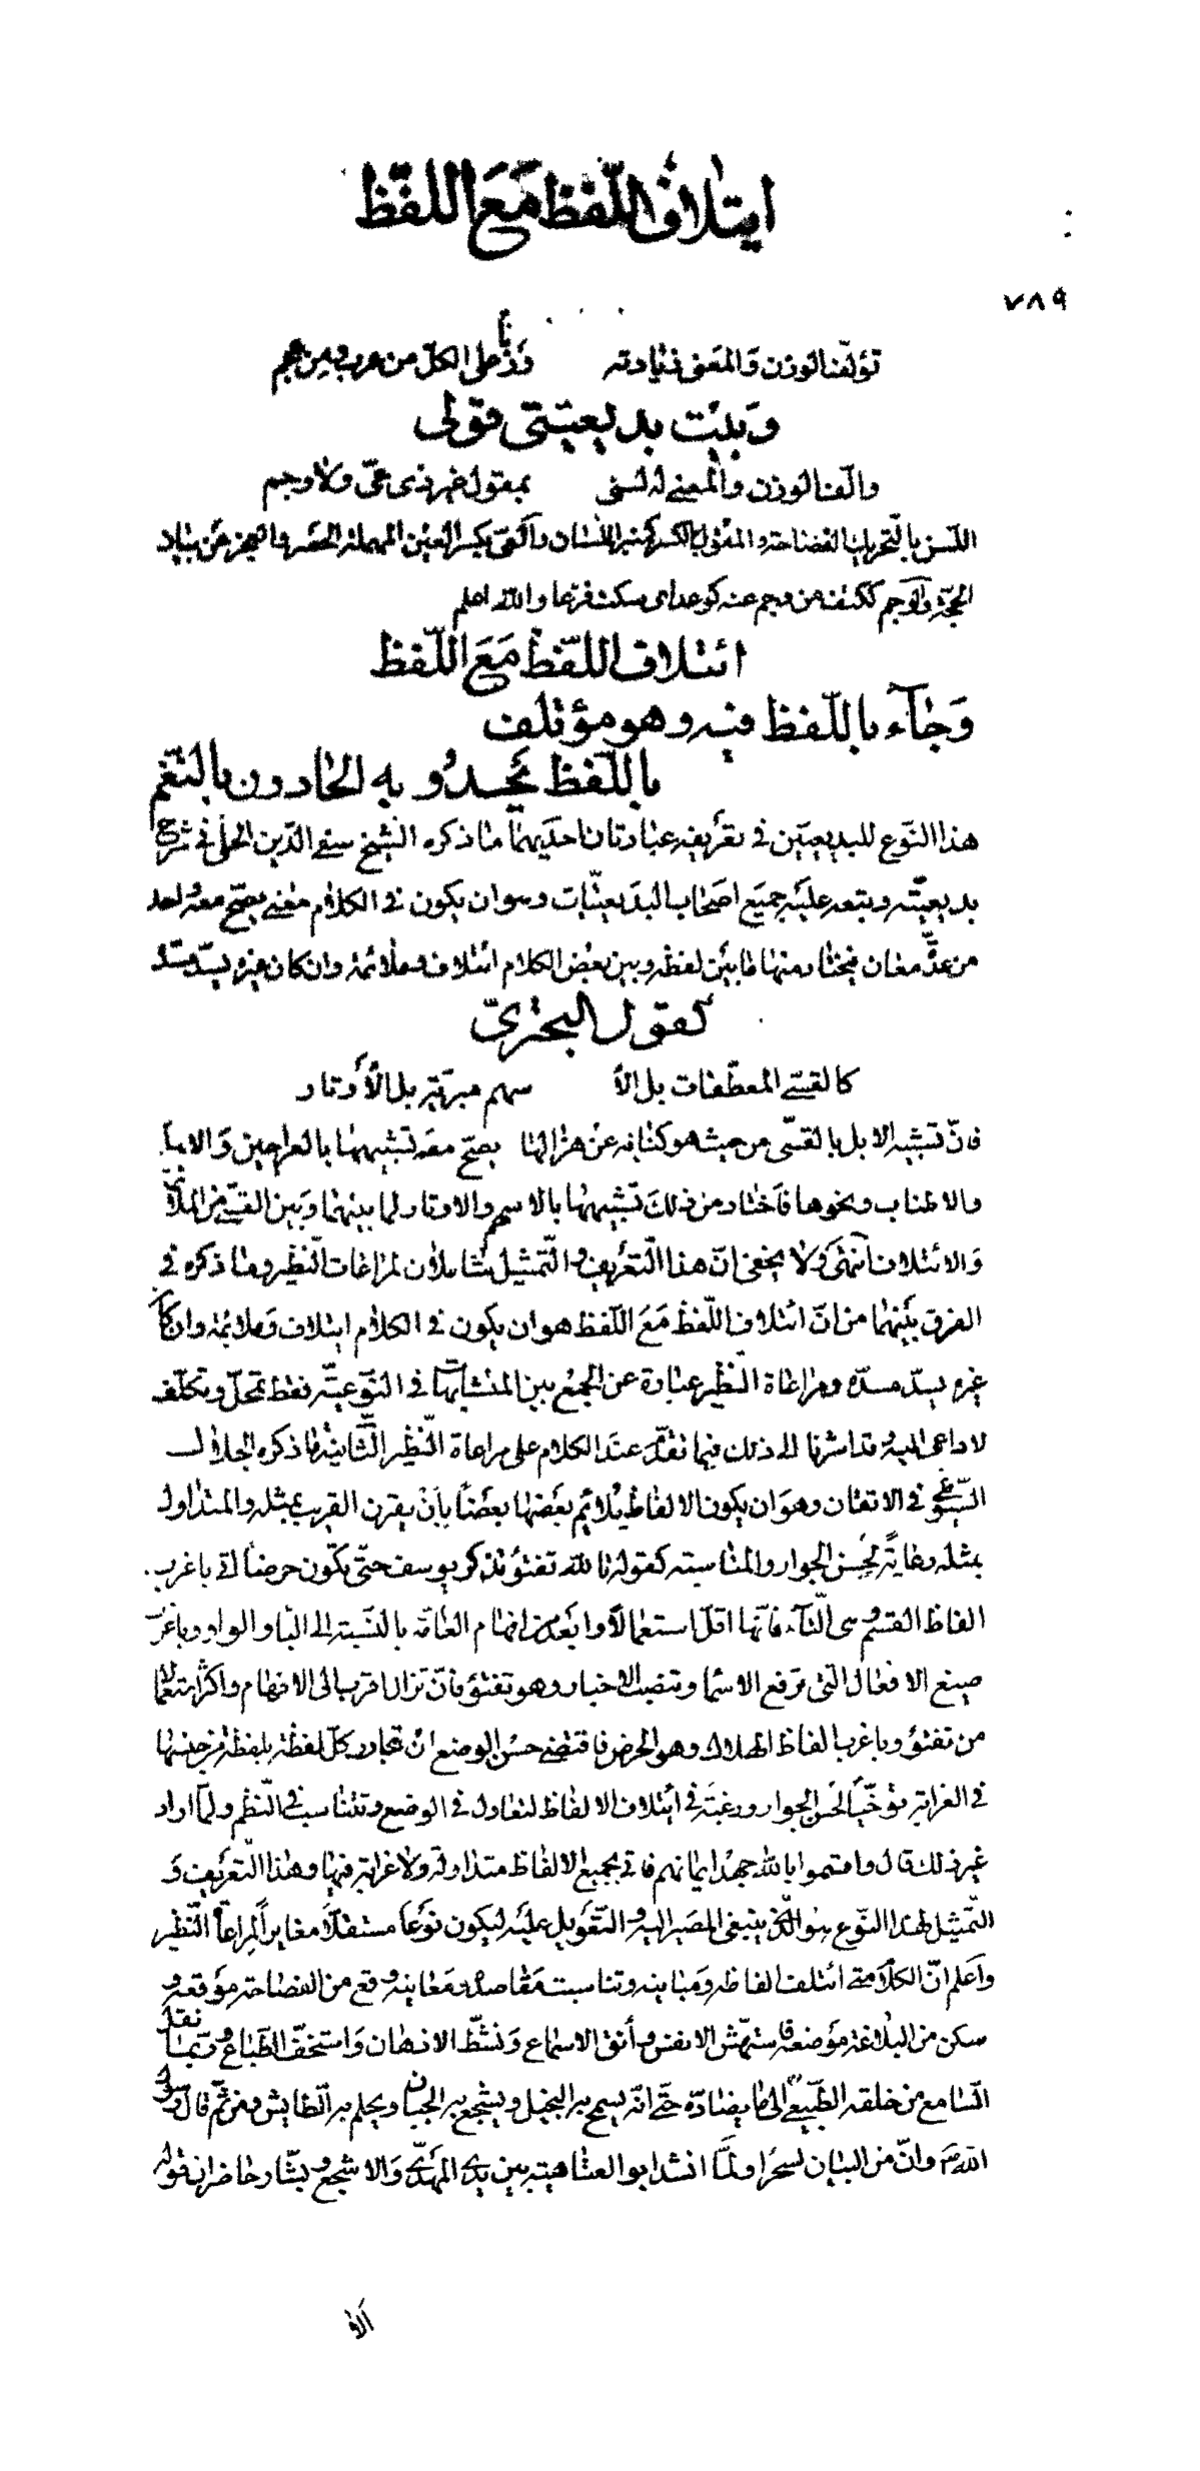 ايتلاف اللّفظ مَعَ اللفّظ
٧٨٩
تؤلّف الوزن وَالمعنى زيادته وَذّا على الكلّ من عرب ومن عجم
وبيت بديعيّتى قولى
والّف الوزن والمعنى له لسنى بمقول غير ذى عىّ ولا وجم
اللّسن بالتّحريك الفصاحة والمقول بالكسر كمنبر اللّسان والعىّ بكسر العين المهملة الحصر والعجز عن بيان
الحجّة والوجم ككتف من وجم عنه كوعد اى سكت فزعا والله اعلم
ائتلاف اللّفظ مَعَ اللّفظ
وَجآء باللّفظ فيه وهو مؤتلف
باللّفظ يحدُو به الحادون بالنّغم
هذا النّوع للبديعيّين فى تعريفه عبارتان احديهما ما ذكره الشّيخ صفى الدّين الحلّى فى شرح
بديعيّته وتبعه عليه جميع اصحاب البديعيّات وهو ان يكون فى الكلام معنى يصحّ معه احد
من عدّة معان فيختار منها ما بين لفظه وبين بعض الكلام ائتلاف وملائمة وان كان غيره يسدّ مسدّه
كقول البحترىّ
كالقسىّ المعطّفات بل الأ سهم مبريّة بل الأوتار
فانّ تشبيه الابل بالقسّى من حيث هو كناية عن هزالها يصحّ معه تشبيهها بالعراجين والاهلّة
والاطناب ونحوها فاختار من ذلك تشبيهها بالاسهم والاوتار لما بينهما وبين القسىّ من الملائمة
والائتلاف انتهى ولا يخفى انّ هذا التّعريف والتّمثيل شاملان لمراعات النّظير وما ذكره فى
الفرق بينهما من انّ ائتلاف اللّفظ مَعَ اللّفظ هو ان يكون فى الكلام ايتلاف وملائمة وان كان
غيره يسدّ مسدّه ومراعاة النّظير عبارة عن الجمع بين المتشابهات فى النّوعيّة فقط تمحّل وتكلّف
لا داعى اليه وقد اشرنا الى ذلك فيما تقدّم عند الكلام على مراعاة النّظير الثّانية ما ذكره الجلال
السّيوطى فى الاتقان وهو ان يكون الالفاظ يلائم بعضها بعضا بان يقرن القريب بمثله والمتداول
بمثله رعاية لحسن الجوار والمناسبة كقوله تالله تفتؤ تذكر يوسف حتّى تكون حرضا اتى باغرب
الفاظ القسم وهى التّاء فانّها اقلّ استعمالا وابعد من افهام العامّة بالنّسبة الى الباء والواو وباغرب
صيغ الافعال التى ترفع الاسماء وتنصب الاخبار وهو تفتؤ فانّ تزال اقرب الى الافهام واكثر استعمالا
من تفتؤ وباغرب الفاظ الهلاك وهو الحرض فاقتضى حسن الوضع ان تجاور كلّ لفظة بلفظة من جنسها
فى الغرابة توخّيا لحسن الجوار ورغبة فى ائتلاف الالفاظ لتعادل فى الوضع وتتناسب فى النّظم ولمّا اراد
غير ذلك قال واقسموا بالله جهد ايمانهم فاتى بجميع الالفاظ متداولة ولا غرابة فيها وهذا التّعريف وَ
التّمثيل لهذا النّوع هو الّذى ينبغى المصير اليه والتّعويل عليه ليكون نوعا مستقلّا مغايرا لمراعاة النّظير
واعلم انّ الكلام متى ائتلفت الفاظه ومبانيه وتناسبت مقاصده ومعانيه وقع من الفصاحة موقعه و
سكن من البلاغة موضعه فاستهشّ الانفس وأنق الاسماع ونشّط الاذهان واستخفّ الطّباع وربّما نقل
السّامع من خلقه الطّبيعىّ الى ما يضادّه حتّى انّه يسمح به البخيل ويشجع به الجبان ويحلم به الطّايش ومن ثمّ قال رسول
الله ص وانّ من البيان لسحرا ولمّا انشد ابو العتاهية بين يدى المهدىّ والاشجع وبشّار حاضران قوله
الا